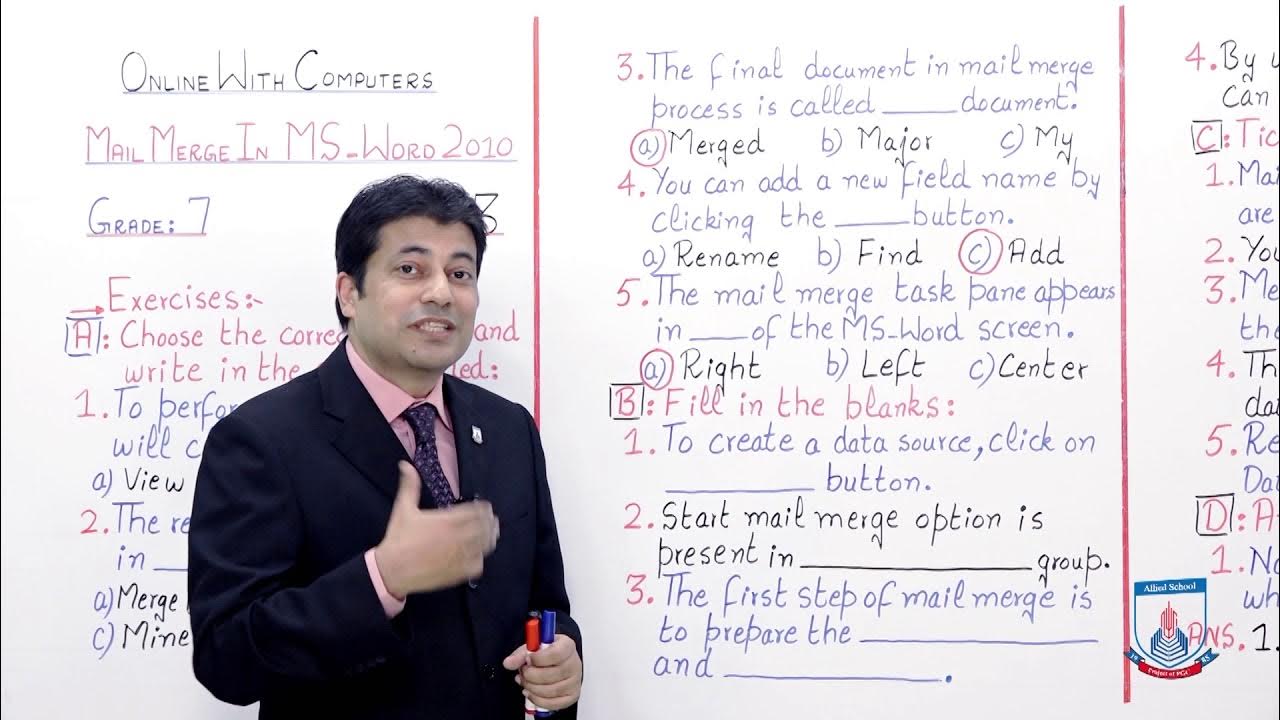 ONLINE WITH COMPUTERS
MAIL MERGE IN MS-WORD 2010
GRADE: 7
3
Exercises:-
A: Choose the and
write in the
1. To
will
a) View
2. The
in
a) Merge
c)
3. The final document in mail merge
process is called ______ document.
a) Merged b) Major c) My
4. You can add a new field name by
clicking the ______ button.
a) Rename b) Find c) Add
5. The mail merge task pane appears
in ____ of the MS-Word screen.
a) Right b) Left c) Center
B: Fill in the blanks:
1. To create a data source, click on
____________ button.
2. Start mail merge option is
present in __________________ group.
3. The first step of mail merge is
to prepare the __________________
and __________________.
4. By
Can
C:
1.
are
2.
3.
4.
5.
D:
1.
ANS. 1.
Allied School
19 85
Project of PGC